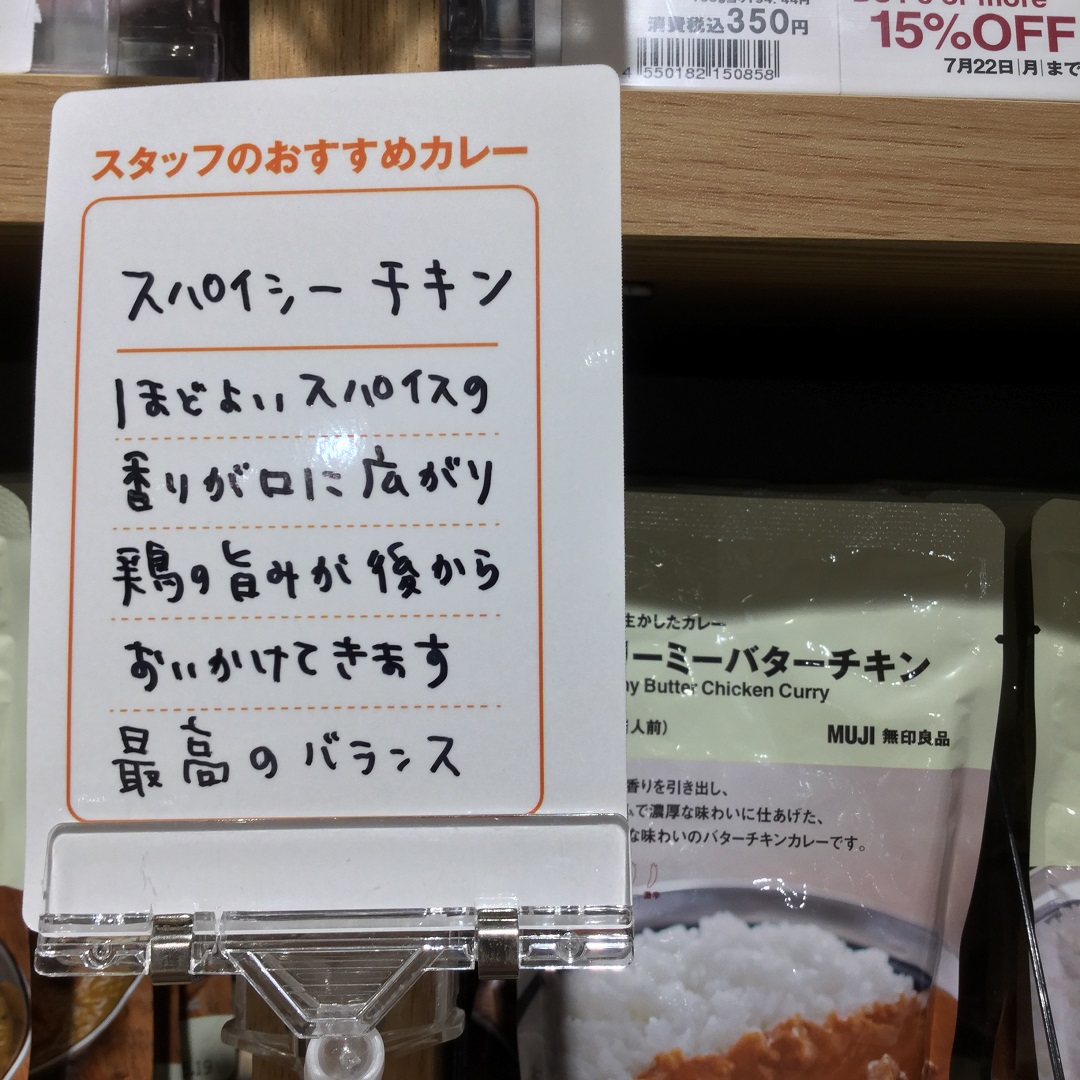 消費税込350円
4 550182 150858
15%OFF
7月22日|月|まで
スタッフのおすすめカレー
スパイシー チキン
ほどよいスパイスの
香りが口に広がり
鶏の旨みが後から
おいかけてきます
最高のバランス
生かしたカレー
ーミーバターチキン
Butter Chicken Curry
人前)
MUJI 無印良品
香りを引き出し、
で濃厚な味わいに仕あげた、
な味わいのバターチキンカレーです。